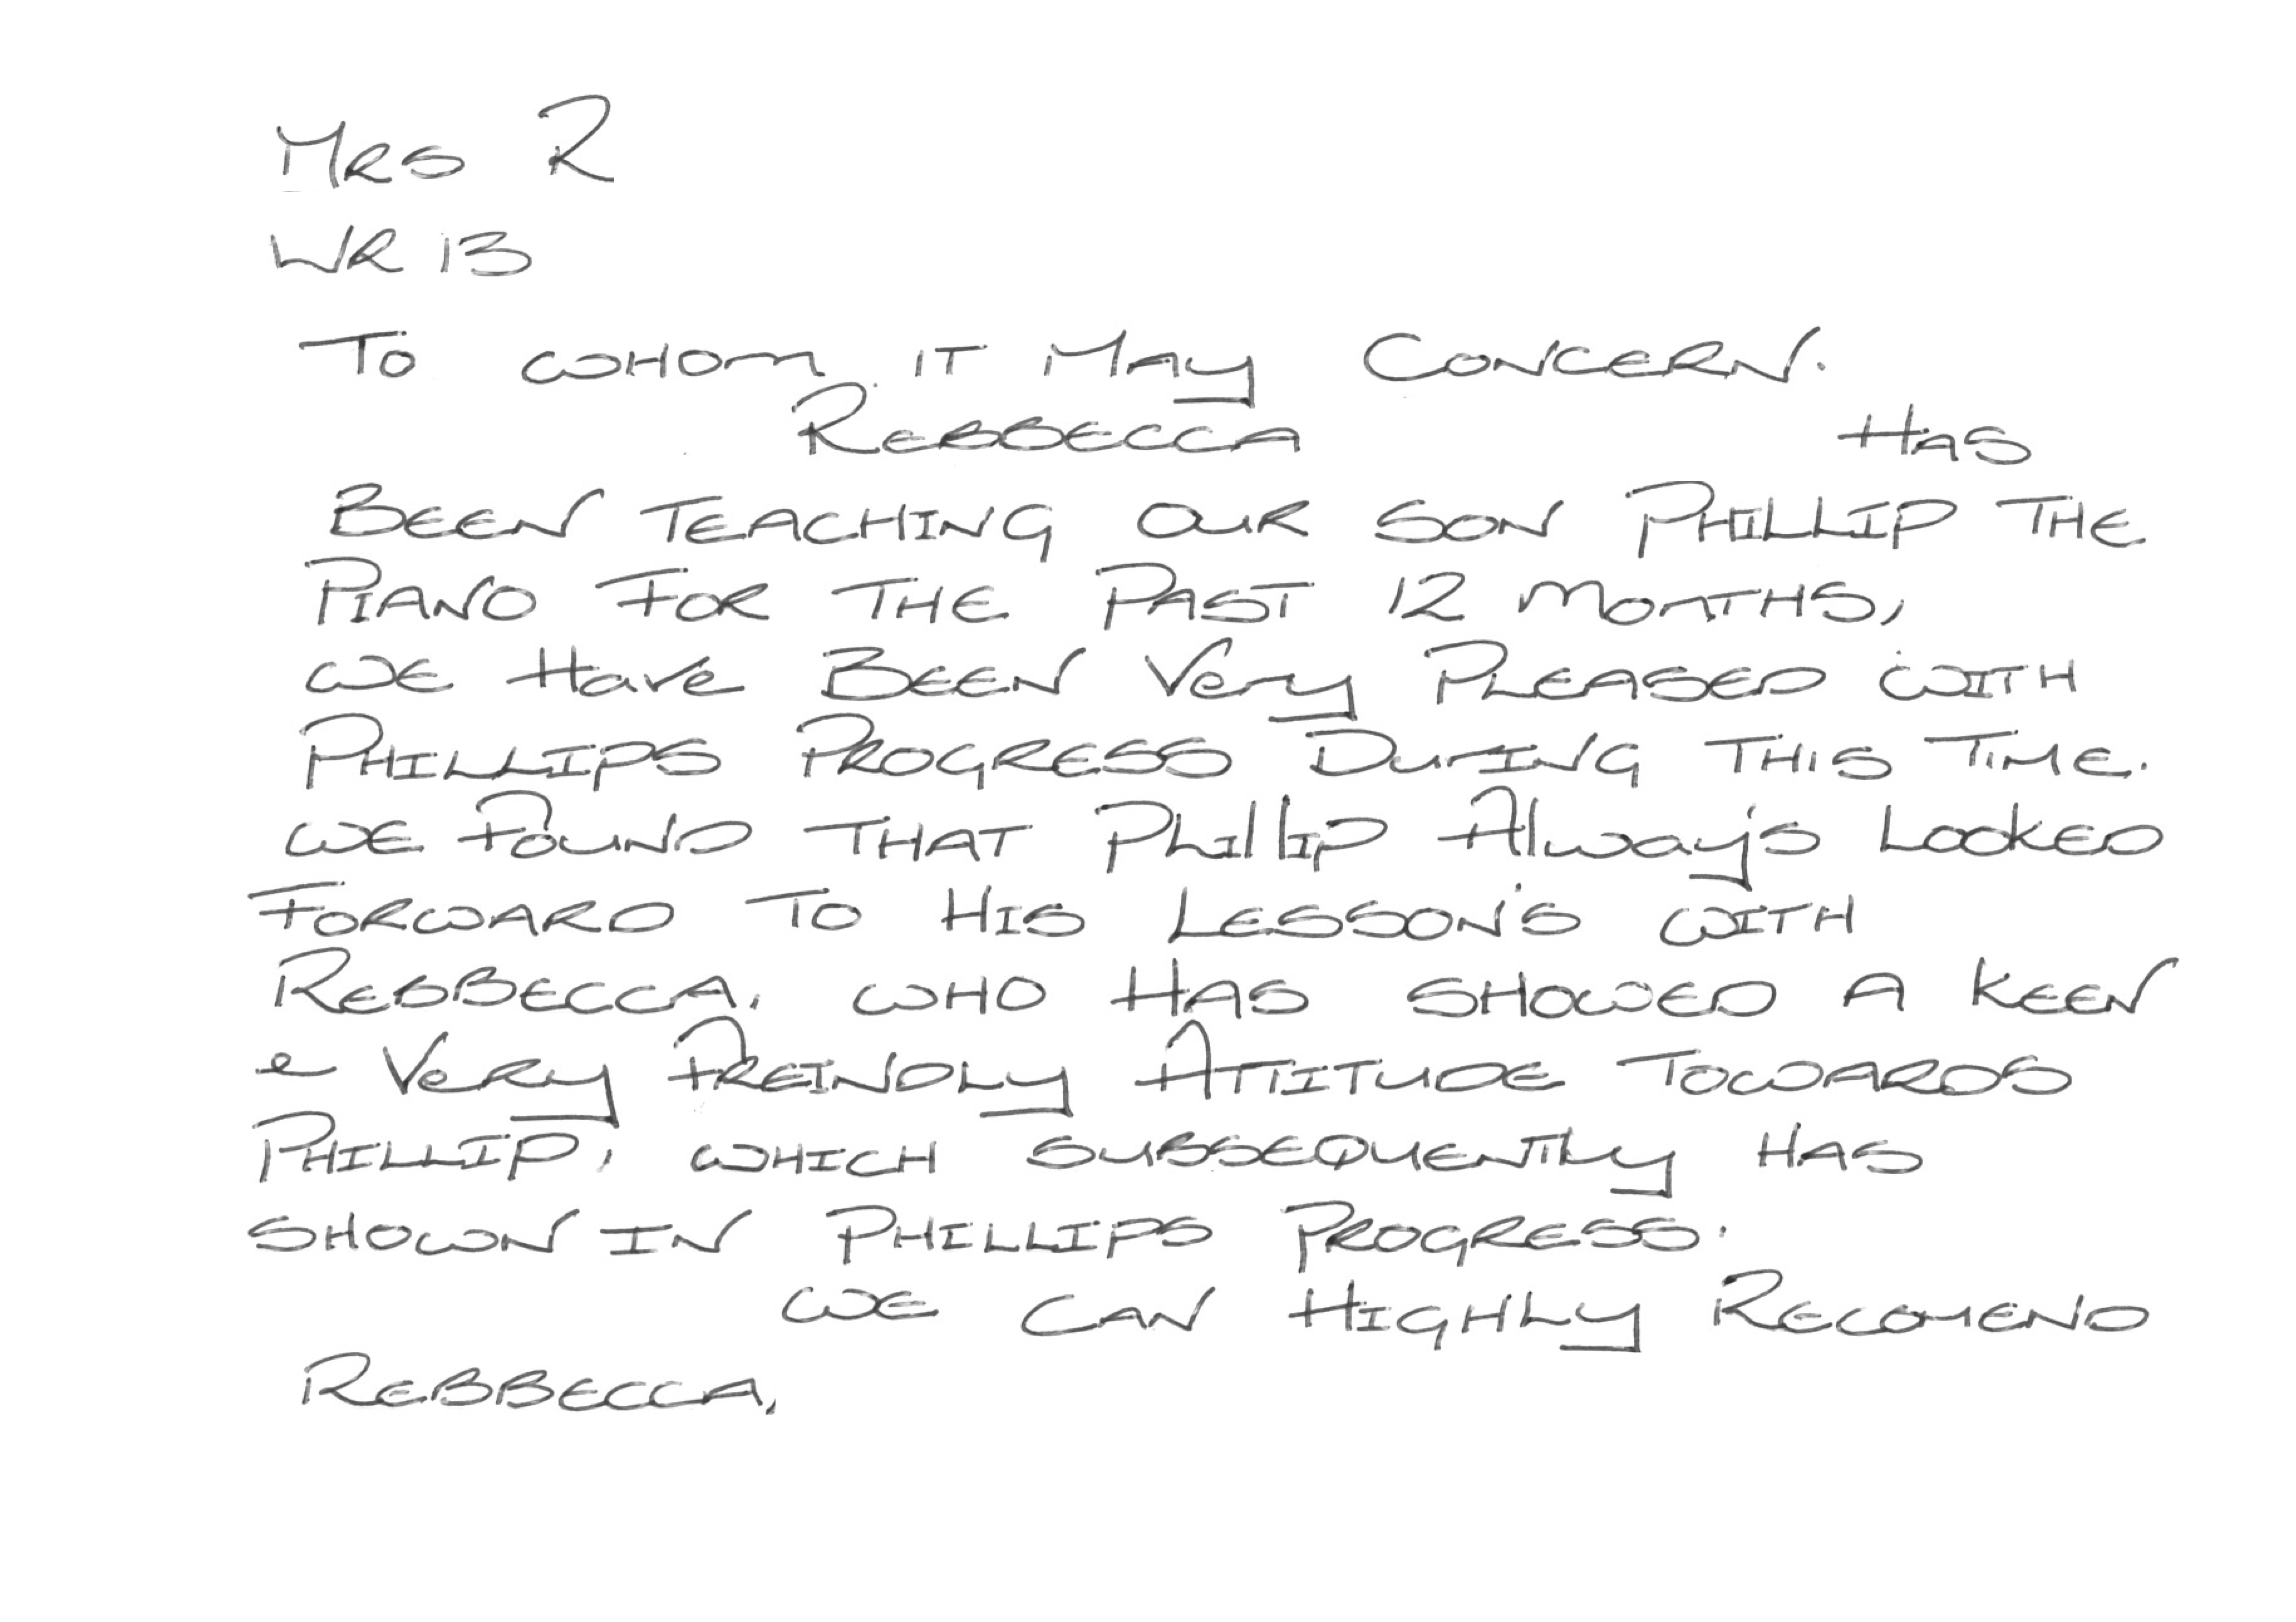 Mrs R
WR 13
To WHOM IT MAY CONCERN.
REBBECCA HAS
BEEN TEACHING OUR SON PHILLIP THE
PIANO FOR THE PAST 12 MONTHS,
WE HAVE BEEN Very PLEASED WITH
PHILLIPS PROGRESS DURING THIS TIME.
WE FOUND THAT Phillip Always LOOKED
FORWARD TO HIS LESSON'S WITH
REBBECCA. WHO HAS SHOWED A KEEN
& VERY FREINDLY ATTITUDE TOWARDS
PHILLIP, WHICH SUBSEQUENTLY HAS
SHOWN IN PHILLIPS PROGRESS.
WE CAN HIGHLY RECOMEND
REBBECCA,